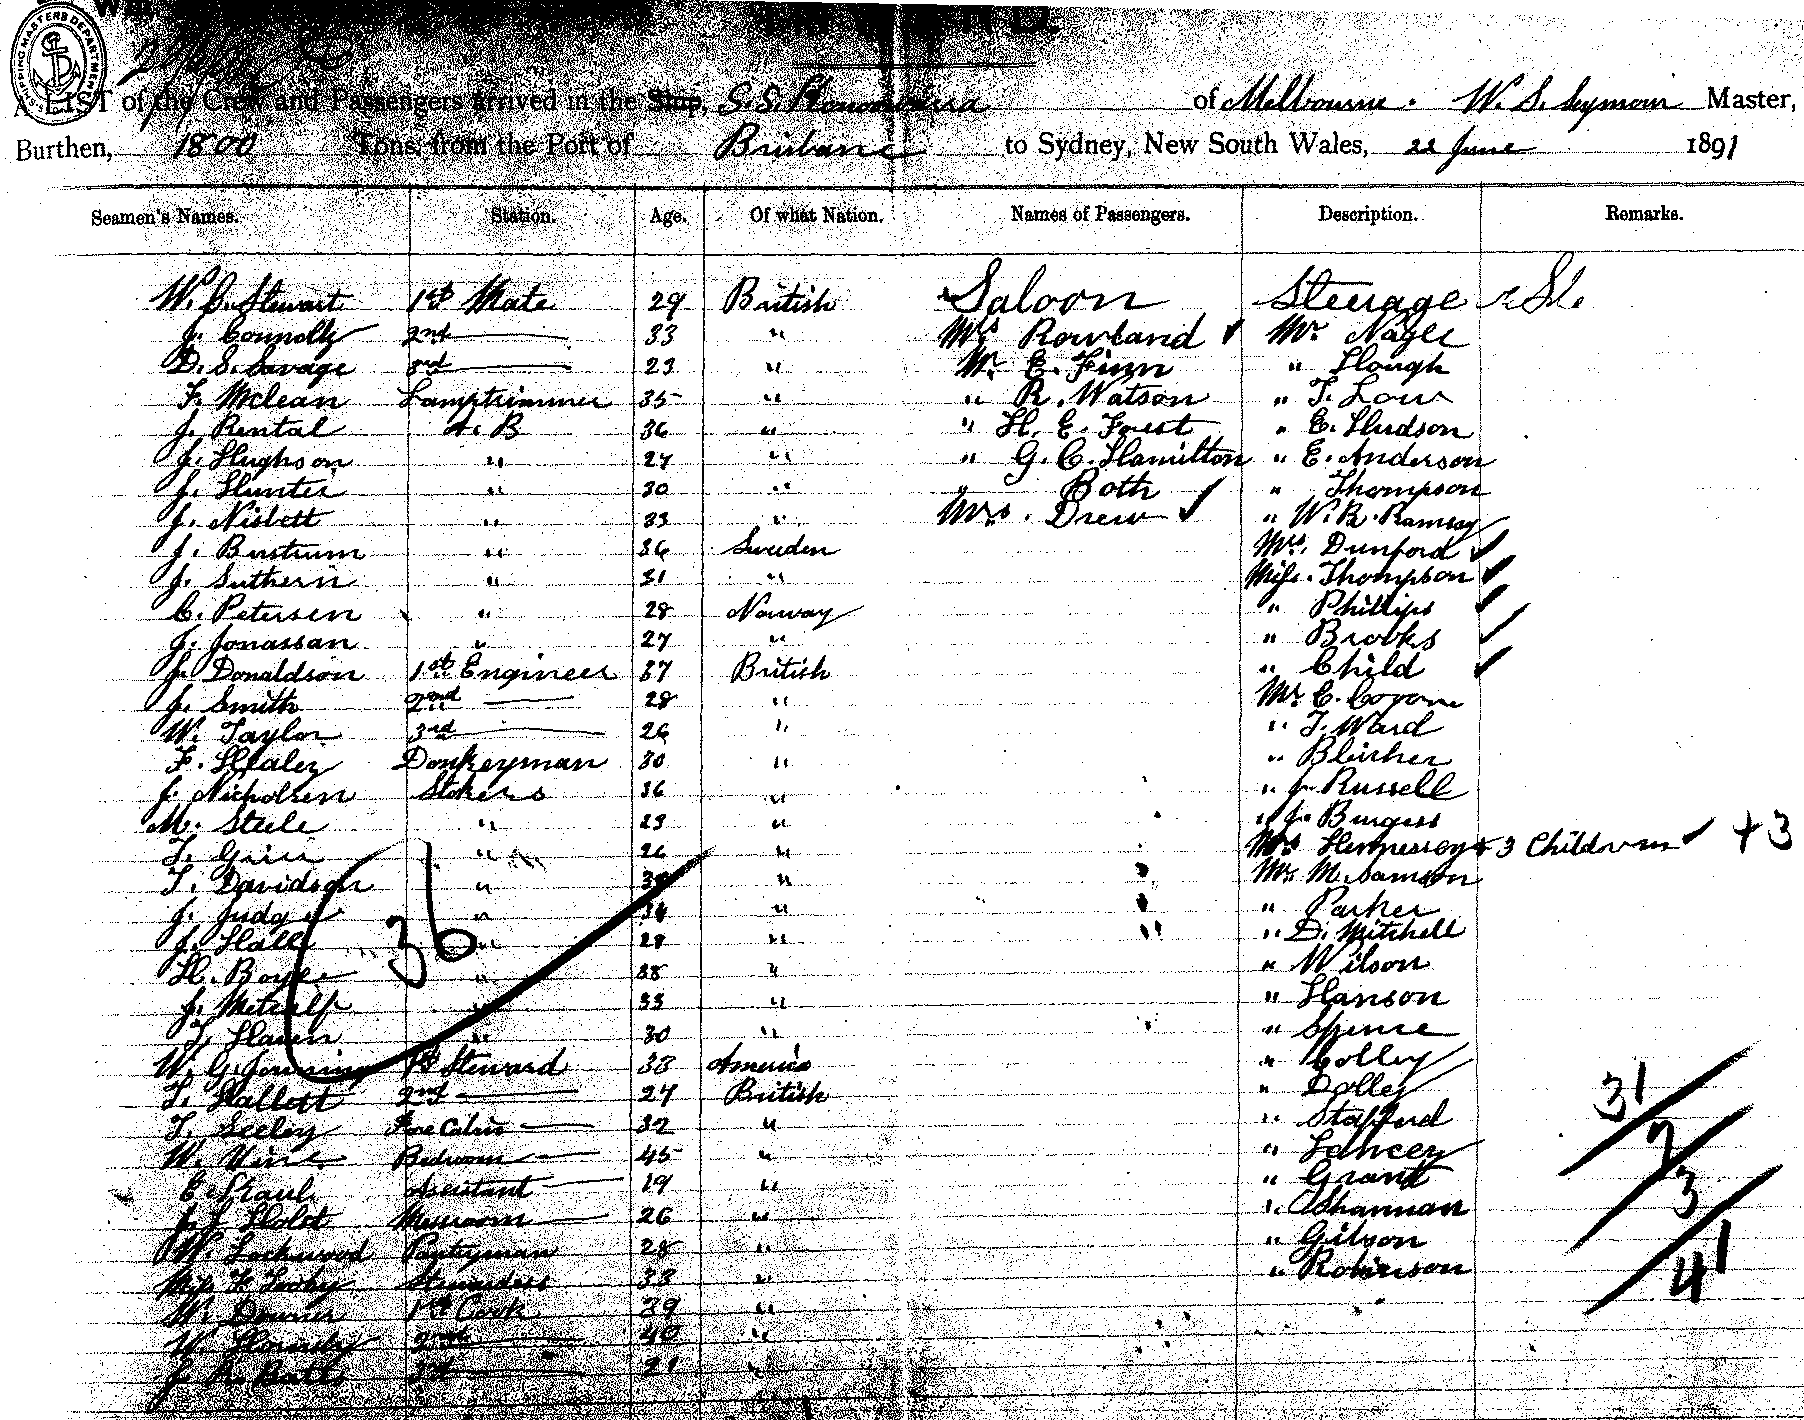 SHIPPING MASTERS DEPARTMENT
A LIST of the Crew and Passengers arrived in the Ship, S.S. of Melbourne. W. S. Seymour Master,
Burthen, 1800 Tons, from the Port of Brisbane to Sydney, New South Wales, 22 June 1891
Seamen's Names. Station. Age. Of what Nation. Names of Passengers. Description. Remarks.
W. Stewart 1st Mate 29 British Saloon Steerage
J. Connolly 2nd — 33 " Mrs Rowland ✓ Mr. Nagle
D. S. Savage 3rd — 23 " Mr. E. Finn " Hough
F. Mclean Lamptrimmer 35 " " R. Watson " T. Low
J. Rental A. B 36 " " H. E. Forest " E. Hudson
J. Hughson " 27 " " G. C. Hamilton " E. Anderson
J. Hunter " 30 " " Both " Thompson
J. Nisbett " 33 " Mrs. Drew ✓ " W. R. Ramsay
J. Burstrum " 36 Sweden Mrs. Dunford ✓
J. Suthern " 31 " Miss. Thompson ✓
C. Petersen " 28 Norway " Phillips ✓
J. Jonassan " 27 " " Brooks ✓
J. Donaldson 1st Engineer 37 British " Child ✓
J. Smith 2nd — 28 " Mr C.
W. Taylor 3rd — 26 " " T. Ward
F. Healey Donkeyman 30 " "
J. Nicholsen Stokers 36 " " J. Russell
M. Steele " 23 " " J. Burgess
T. " 26 " Mrs Hennessey + 3 Children ✓ +3
T. Davidson " " Mr M. Samson
J. Judge " 34 " " Parker
J. Hall " 28 " " D. Mitchell
36
H. Boyle " 38 " " Wilson
J. Metcalf " 33 " " Hanson
T. " 30 " " Spence
W. G. 1st Steward 38 America " Golley
T. Hallett 2nd — 24 British " Dolley
31
T. Seeley Fore Cabin — 32 " " Stafford
2
W. Vine Bedroom — 45 " " Lancey
E. Assistant — 19 " " Grant
3
J. Holt Messroom — 26 " " Shannan
W. Lockwood Pantryman 28 " " Gibson
41
Miss F. Stewardess 33 " " Robinson
W. 1st Cook 29 "
W. 2nd — 40 "
J. 3rd — 21 "